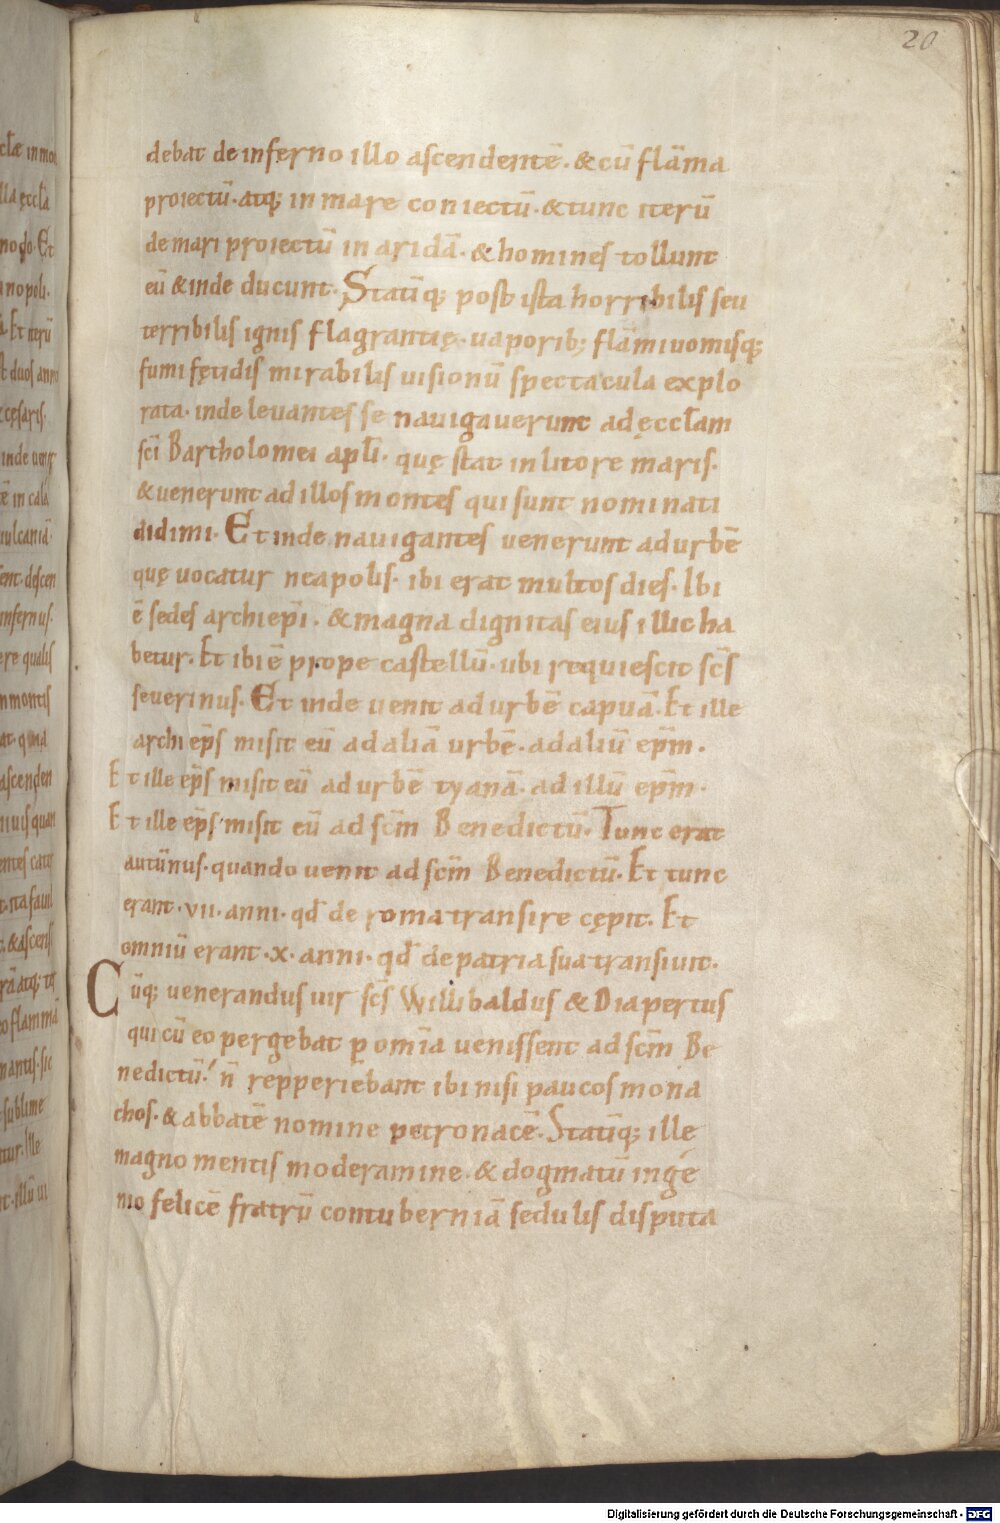 20
debat de inferno illo ascendentē. & cū flāma
proiectū. atq; in mare coniectū. & tunc iterū
de mari proiectū in aridā. & homines tollunt
eū & inde ducunt. Statīq; post ista horribilis seu
terribilis ignis flagrantię. uaporib; flāmiuomisq;
fumi fętidis mirabilis uisionū spectacula explo
rata. inde levantes se nauigaverunt ad ęccłam
sc̄i Bartholomei apłi. quę stat in litore maris.
& venerunt ad illos montes qui sunt nominati
didimi. Et inde nauigantes venerunt ad urbē
quę vocatur neapolis. ibi erat multos dies. Ibi
ē sedes archiep̄i. & magna dignitas eius illic ha
betur. Et ibi ē prope castellū. ubi requiescit sc̄s
severinus. Et inde venit ad urbē capuā. Et ille
archiep̄s misit eū ad aliā urbē. ad aliū ep̄m.
Et ille ep̄s misit eū ad urbē tyanā. ad illū ep̄m.
Et ille ep̄s misit eū ad sc̄m Benedictū. Tunc erat
autūnus. quando venit ad sc̄m Benedictū. Et tunc
erant .vii. anni. qđ de roma transire cępit. Et
omniū erant .x. anni. qđ de patria sua transivit.
Cūq; venerandus vir sc̄s Willibaldus & Diapertus
qui cū eo pergebat p omīa venissent ad sc̄m Be
nedictū. n̄ repperiebant ibi nisi paucos mona
chos. & abbatē nomine petronacē. Statīq; ille
magno mentis moderamine. & dogmatū inge
nio felicē fratrū contuberniā sedulis disputa
Digitalisierung gefördert durch die Deutsche Forschungsgemeinschaft - DFG